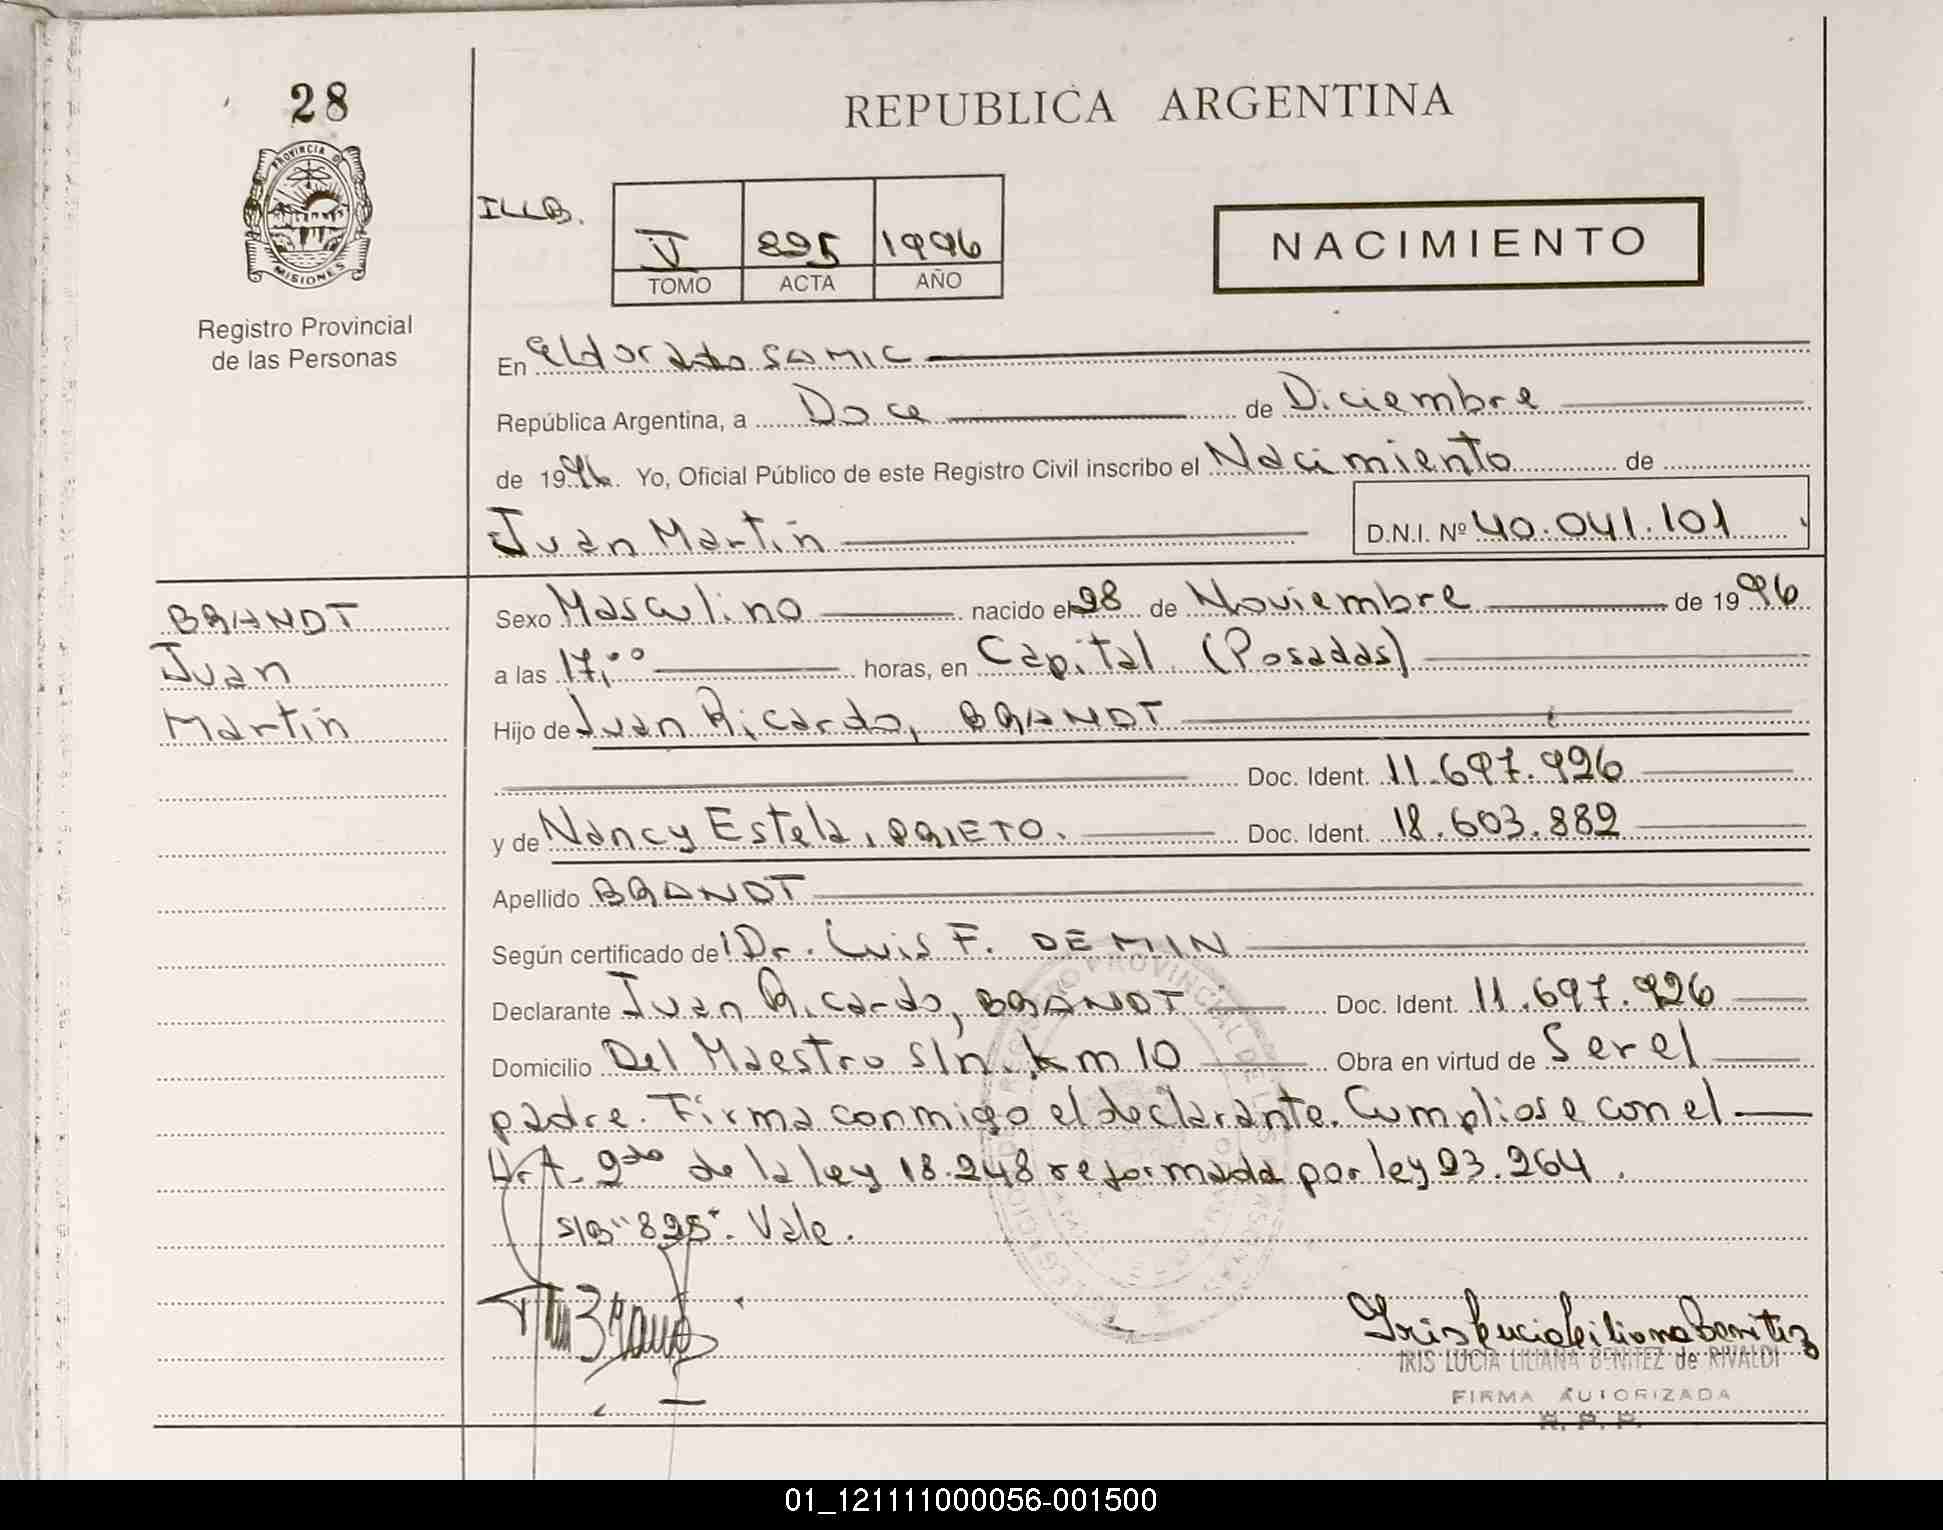 28
PROVINCIA DE
MISIONES
Registro Provincial
de las Personas
REPUBLICA ARGENTINA
ILLB.
V 895 1996
TOMO ACTA AÑO
NACIMIENTO
En Eldorado SAMIC
República Argentina, a Doce de Diciembre
de 1996. Yo, Oficial Público de este Registro Civil inscribo el Nacimiento de
Juan Martín D.N.I. Nº 40.041.101
BRANDT
Juan
Martín
Sexo Masculino nacido el 28 de Noviembre de 1996
a las 17,00 horas, en Capital (Posadas)
Hijo de Juan Ricardo, BRANDT
Doc. Ident. 11.697.926
y de Nancy Estela, PRIETO. Doc. Ident. 18.603.882
Apellido BRANDT
Según certificado de Dr. Luis F. DEMIN
Declarante Juan Ricardo, BRANDT Doc. Ident. 11.697.926
Domicilio Del Maestro s/n. km 10 Obra en virtud de Ser el
padre. Firma conmigo el declarante. Cumpliose con el
Art. 2do de la ley 18.248 reformada por ley 23.264.
s/B "895". Vale.
Iris Lucia Liliana Benitez
IRIS LUCIA LILIANA BENITEZ de RIVALDI
FIRMA AUTORIZADA
R. P. P.
01_121111000056-001500